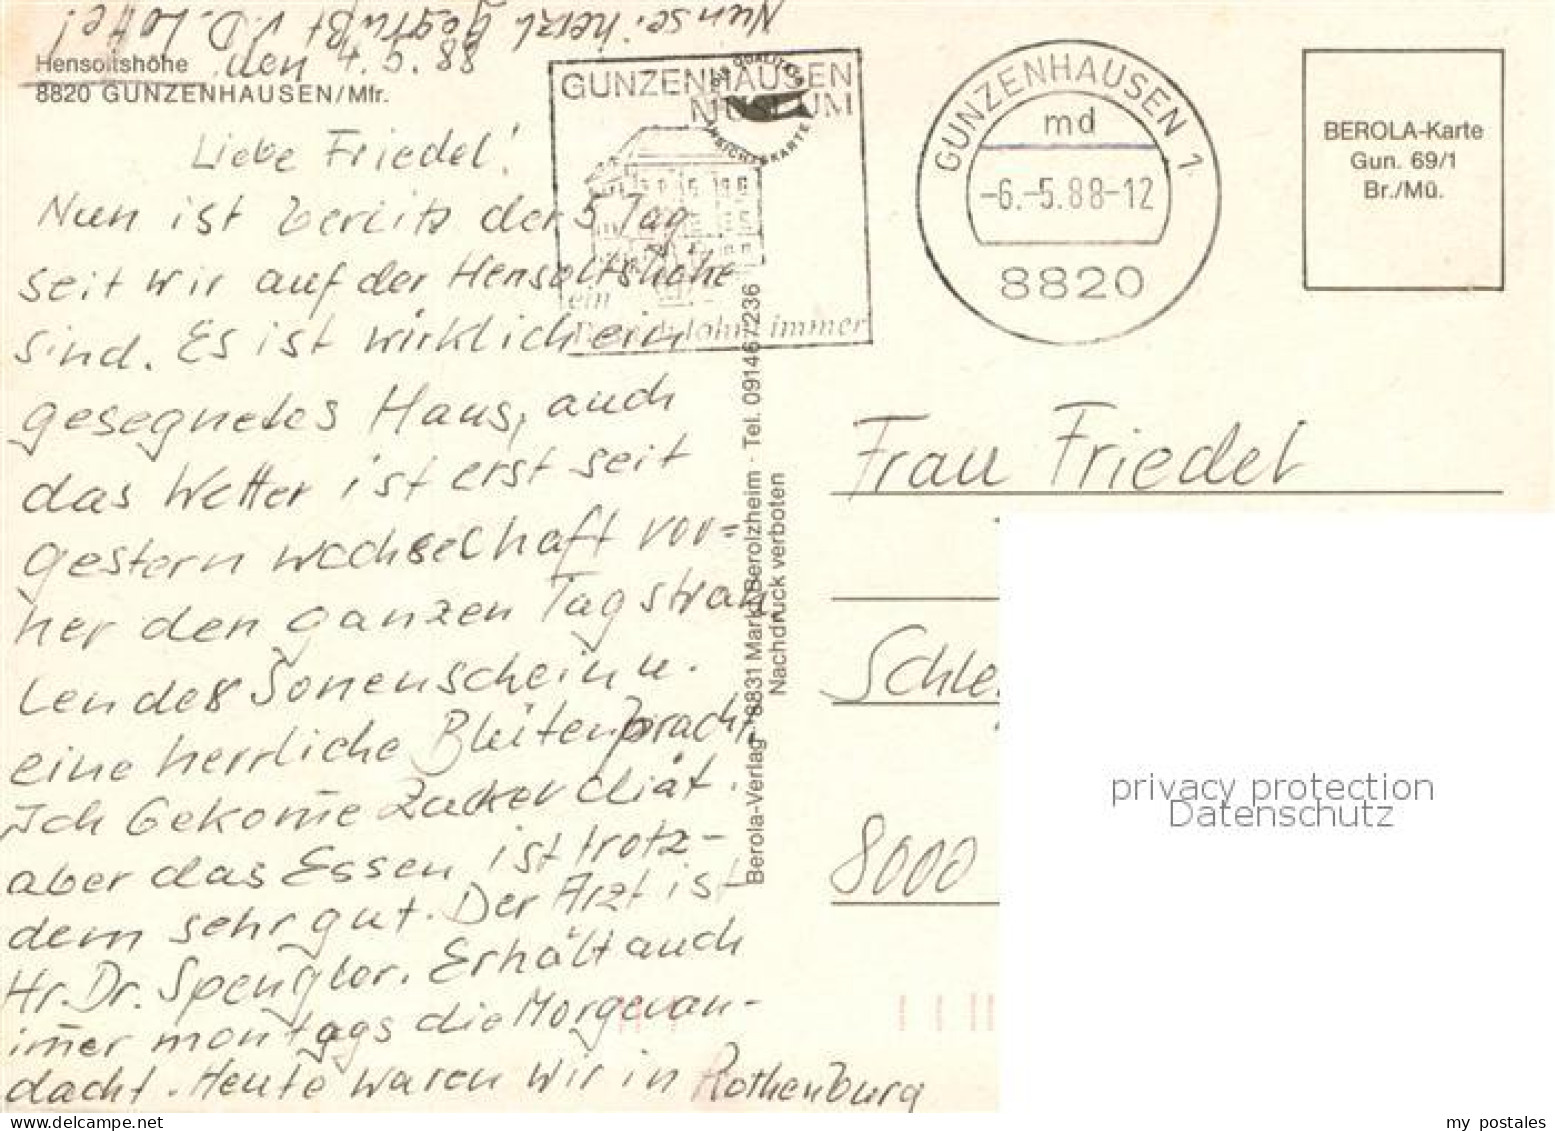 Nun sei herzl. gegrüßt v. D. Lotte!
Hensoltshöhe den 4.5.88
8820 GUNZENHAUSEN/Mfr.
Liebe Friedel!
Nun ist bereits der 5 Tag
seit wir auf der Hensoltshöhe
sind. Es ist wirklich ein
gesegnetes Haus, auch
das Wetter ist erst seit
gestern wechselhaft vor=
her den ganzen Tag strah
lendes Sonenschein u.
eine herrliche Blütenpracht,
Ich bekome Zucker diät.
aber das Essen ist trotz-
dem sehr gut. Der Arzt ist
Hr. Dr. Spengler. Erhält auch
imer montags die Morgenan-
dacht. Heute waren wir in Rothenburg
GUNZENHAUSEN
MUSEUM
ein
immer
GUNZENHAUSEN 1
md
-6.-5.88-12
8820
BEROLA-Karte
Gun. 69/1
Br./Mü.
Berola-Verlag · 8831 Markt Berolzheim · Tel. 09146 / 236
Nachdruck verboten
Frau Friedel
Schle
8000
privacy protection
Datenschutz
my postales